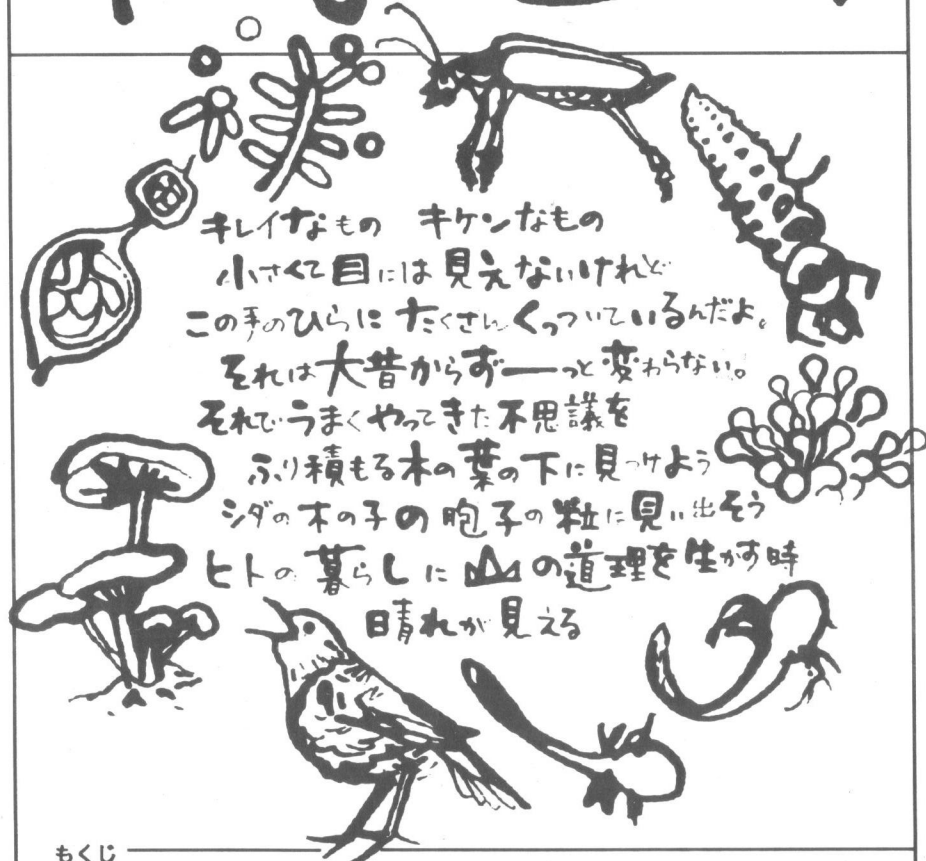 キレイなもの キケンなもの
小さくて目には見えないけれど
この手のひらに たくさん くっついているんだよ。
それは大昔からずーーっと変わらない。
それで うまく やってきた 不思議を
ふり積もる木の葉の下に見つけよう
シダの 木の子の 胞子の粒に見い出そう
ヒトの 暮らしに 山の道理を生かす時
晴れが見える
もくじ